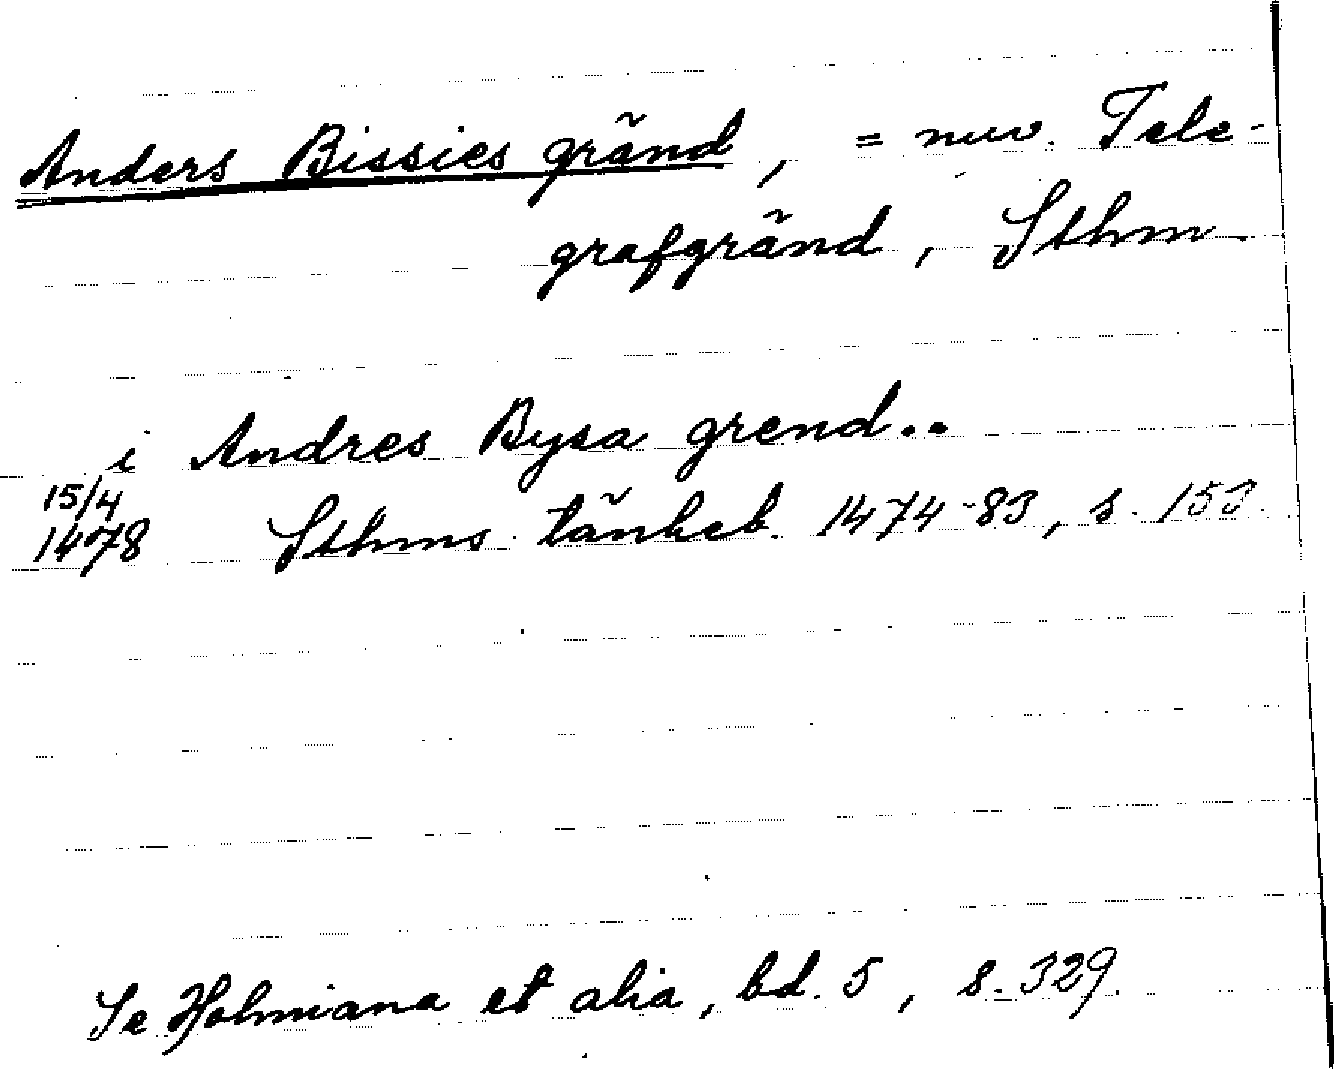 Anders Bissies gränd, = nuv. Tele-
grafgränd, Sthm
i Andres Bysa grend..
15/4
1478 Sthms tänkeb. 1474-83, s. 153.
Se Holmiana et alia, bd. 5, s. 329.